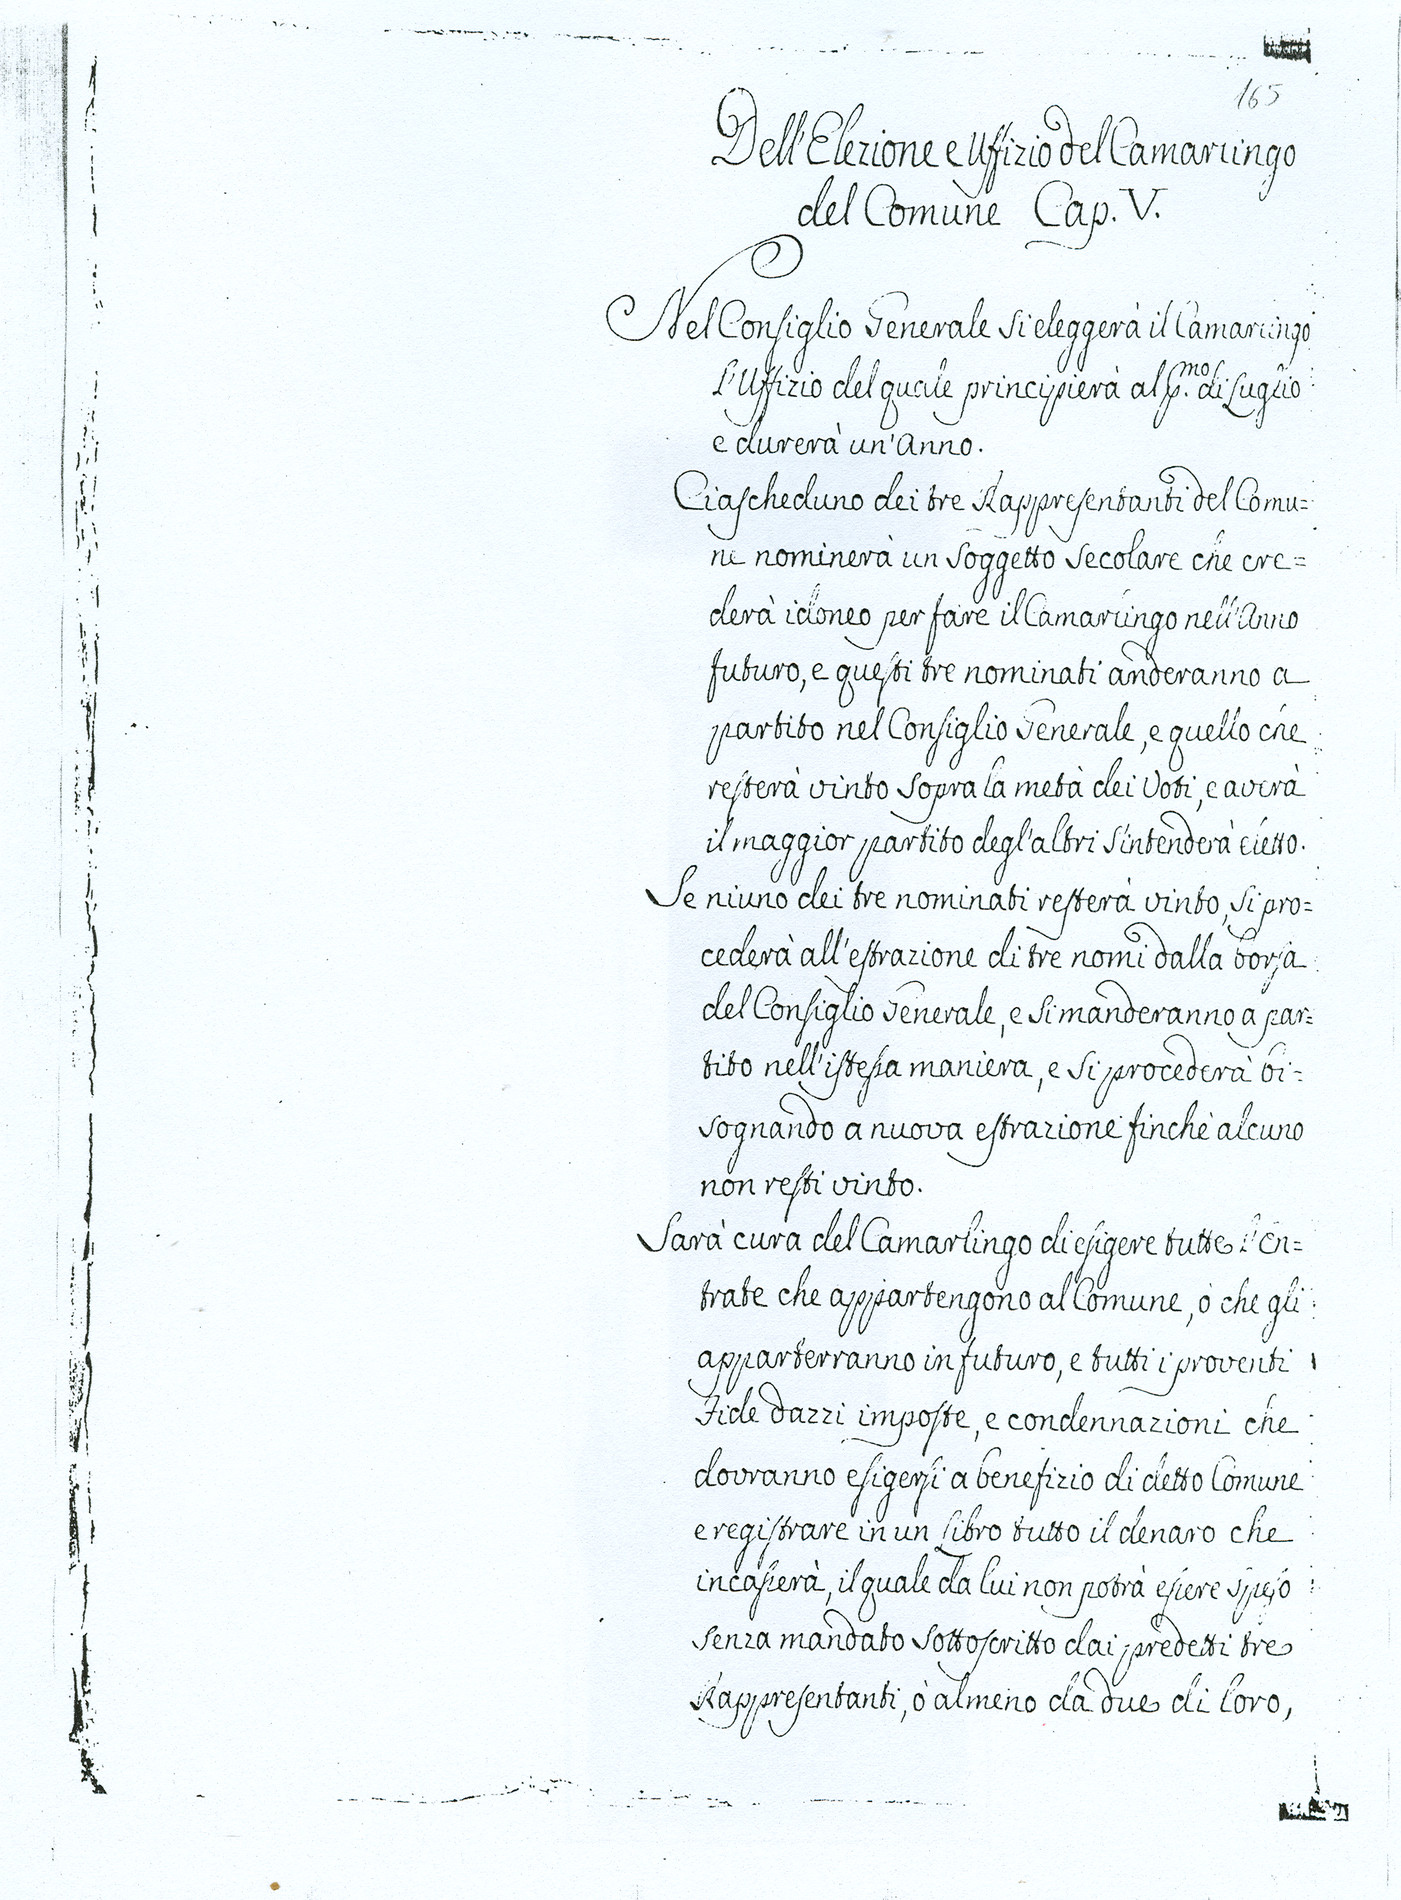 165
Dell'Elezione e Uffizio del Camarlingo
del Comune Cap. V.
Nel Consiglio Generale si eleggerà il Camarlingo
l'Uffizio del quale principierà al p.mo di Luglio
e durerà un'Anno.
Ciascheduno dei tre Rappresentanti del Comu=
ne nominerà un soggetto secolare che cre=
derà idoneo per fare il Camarlingo nell'Anno
futuro, e questi tre nominati anderanno a
partito nel Consiglio Generale, e quello che
resterà vinto sopra la metà dei Voti, e averà
il maggior partito degl'altri s'intenderà eletto.
Se niuno dei tre nominati resterà vinto, si pro=
cederà all'estrazione di tre nomi dalla borsa
del Consiglio Generale, e si manderanno a par=
tito nell'istessa maniera, e si procederà bi=
sognando a nuova estrazione finchè alcuno
non resti vinto.
Sarà cura del Camarlingo di esigere tutte l'En=
trate che appartengono al Comune, ò che gli
apparterranno in futuro, e tutti i proventi
Fide dazzi imposte, e condennazioni che
dovranno esigersi a benefizio di detto Comune
e registrare in un Libro tutto il denaro che
incasserà, il quale da lui non potrà essere speso
senza mandato sottoscritto dai predetti tre
Rappresentanti, ò almeno da due di loro,